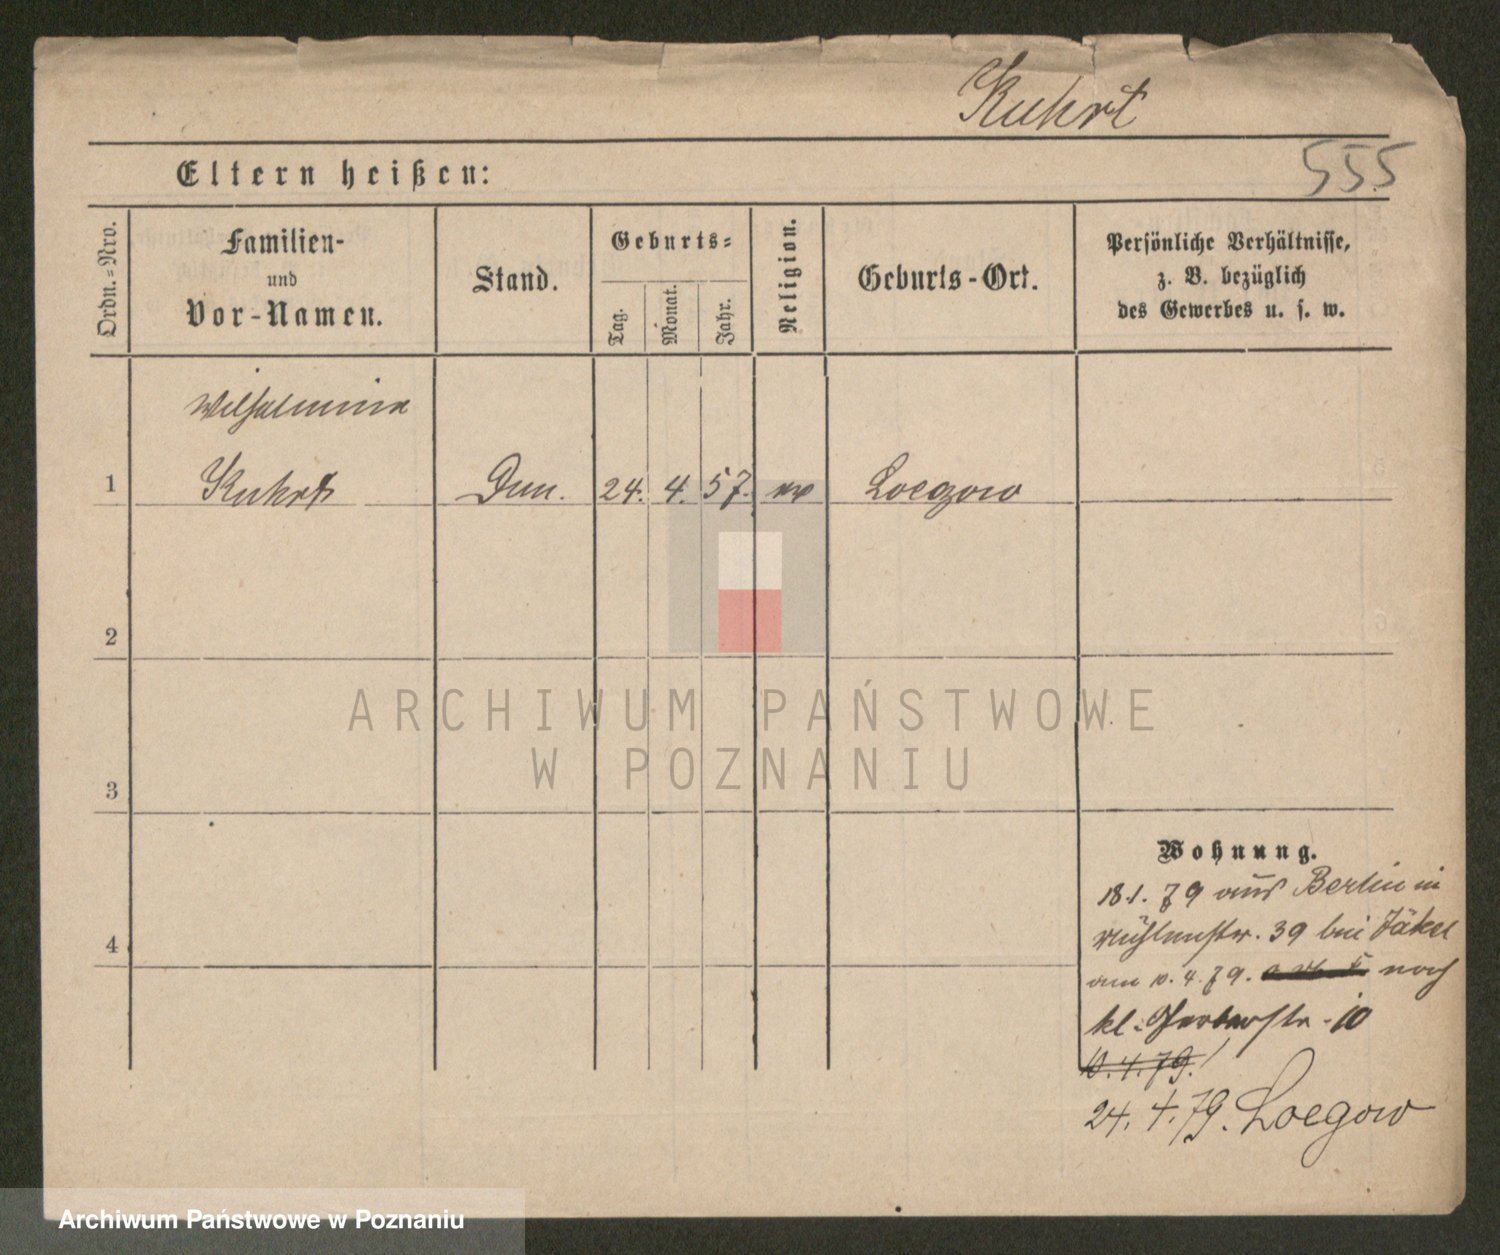 Kuhrt
555
Eltern heißen:
Ordn.=Nro.
Familien-
und
Vor-Namen.
Stand.
Geburts=
Tag.
Monat.
Jahr.
Religion.
Geburts-Ort.
Persönliche Verhältnisse,
z. B. bezüglich
des Gewerbes u. s. w.
Wilhelmine
1 Kuhrt 24. 4. 57. ev Loegow
2
3
4
Wohnung.
18.1. 79 aus Berlin in
Mühlenstr. 39 bei Jäkel
am 10. 4. 79. nach
kl. Gerberstr. 10
10. 4. 79.
24. 4. 79. Loegow
ARCHIWUM PAŃSTWOWE
W POZNANIU
Archiwum Państwowe w Poznaniu